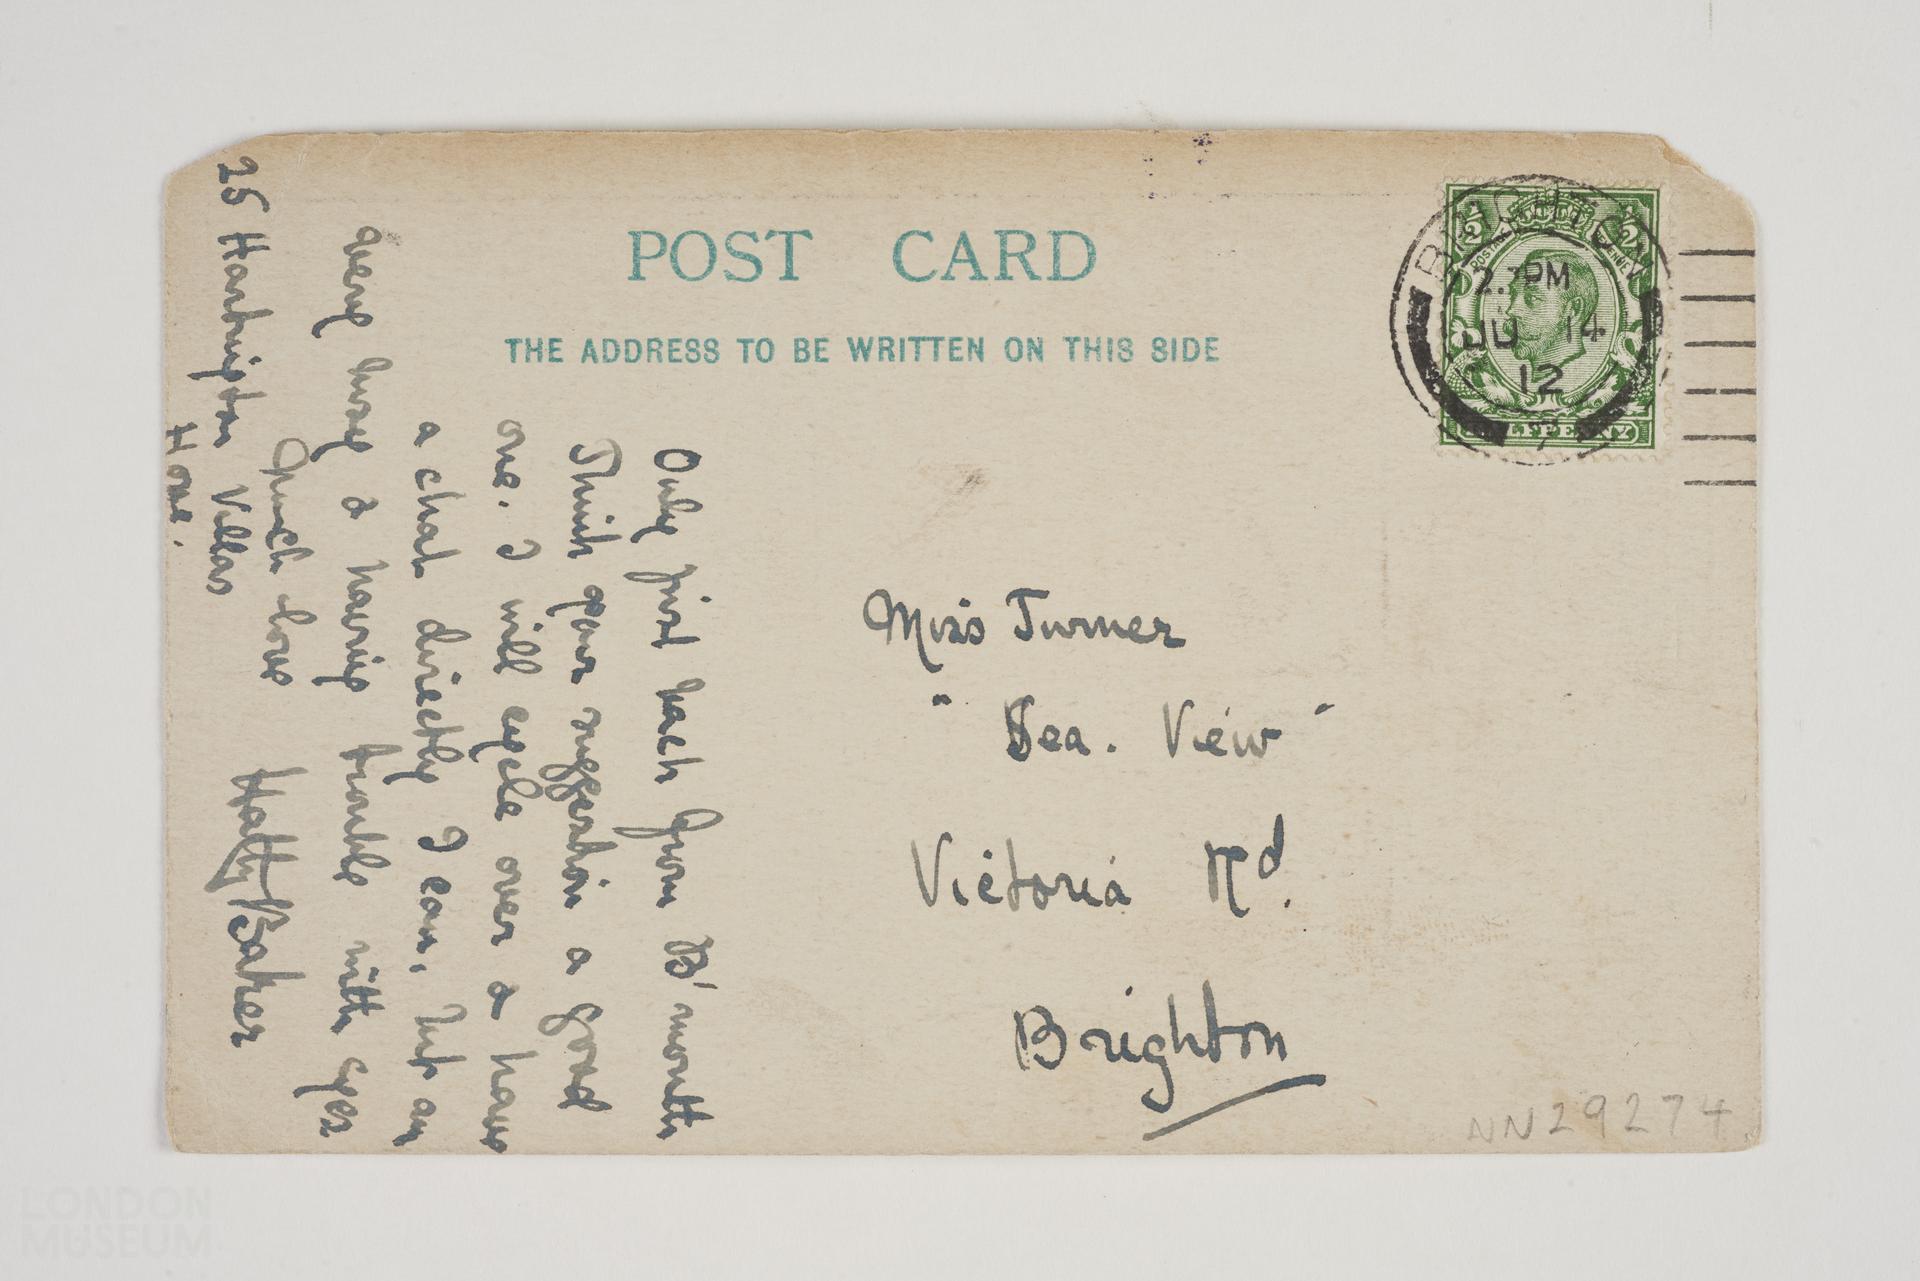 POST CARD
THE ADDRESS TO BE WRITTEN ON THIS SIDE
½ ½
BRIGHTON
2. PM
JU 14
12
HALFPENNY
Miss Turner
"Sea. View"
Victoria Rd.
Brighton
NN29274
25 Hartington Villas
Hove.
Only just back from B'mouth
Think your suggestion a good
one. I will cycle over & have
a chat directly I can, but am
very busy & having trouble with eyes
Much love
Hatty Baker
LONDON
MUSEUM